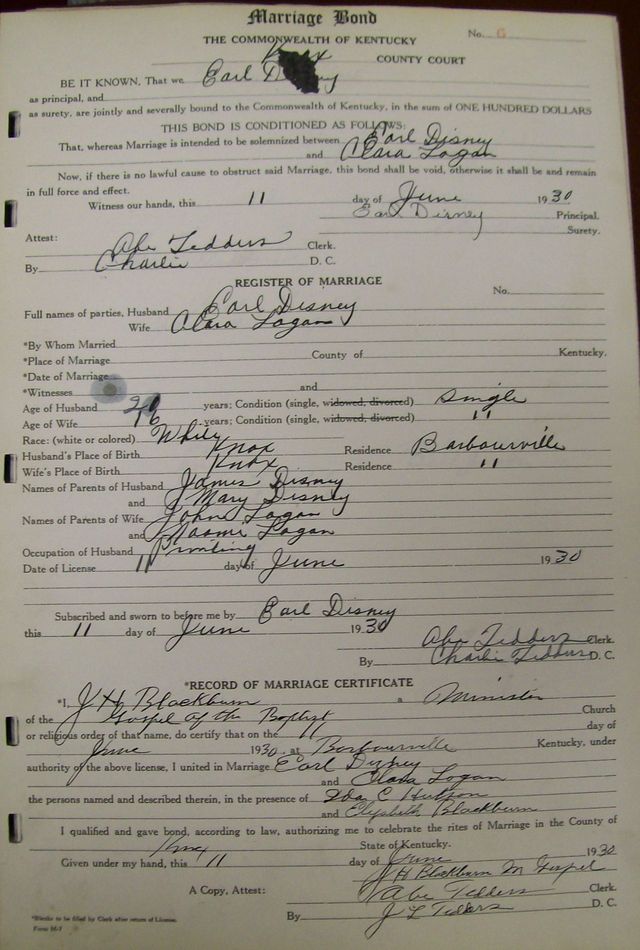 Marriage Bond
No. G
THE COMMONWEALTH OF KENTUCKY
Knox COUNTY COURT
BE IT KNOWN, That we Earl Disney
as principal, and
as surety, are jointly and severally bound to the Commonwealth of Kentucky, in the sum of ONE HUNDRED DOLLARS
THIS BOND IS CONDITIONED AS FOLLOWS:
That, whereas Marriage is intended to be solemnized between Earl Disney
and Clara Logan
Now, if there is no lawful cause to obstruct said Marriage, this bond shall be void, otherwise it shall be and remain
in full force and effect.
Witness our hands, this 11 day of June 1930
Earl Disney Principal.
Surety.
Attest: Abe Tedders Clerk.
By Charlie D. C.
REGISTER OF MARRIAGE
No.
Full names of parties, Husband Earl Disney
Wife Clara Logan
*By Whom Married
*Place of Marriage County of Kentucky.
*Date of Marriage
*Witnesses and
Age of Husband 20 years; Condition (single, widowed, divorced) Single
Age of Wife 16 years; Condition (single, widowed, divorced) "
Race: (white or colored) White
Husband's Place of Birth Knox Residence Barbourville
Wife's Place of Birth Knox Residence "
Names of Parents of Husband James Disney
and Mary Disney
Names of Parents of Wife John Logan
and Naomi Logan
Occupation of Husband Printing
Date of License 11 day of June 1930
Subscribed and sworn to before me by Earl Disney
this 11 day of June 1930
Abe Tedders Clerk.
By Charlie Tedders D. C.
*RECORD OF MARRIAGE CERTIFICATE
*I, J H Blackburn a Minister
of the Gospel of the Baptist Church
or religious order of that name, do certify that on the 11 day of
June 1930, at Barbourville Kentucky, under
authority of the above license, I united in Marriage Earl Disney
and Clara Logan
the persons named and described therein, in the presence of Ida C Hutson
and Elizabeth Blackburn
I qualified and gave bond, according to law, authorizing me to celebrate the rites of Marriage in the County of
Knox State of Kentucky.
Given under my hand, this 11 day of June 1930
J H Blackburn M Gospel
A Copy, Attest: Abe Tedders Clerk.
By J L Tedders D. C.
*Blanks to be filled by Clerk after return of License.
Form M-7